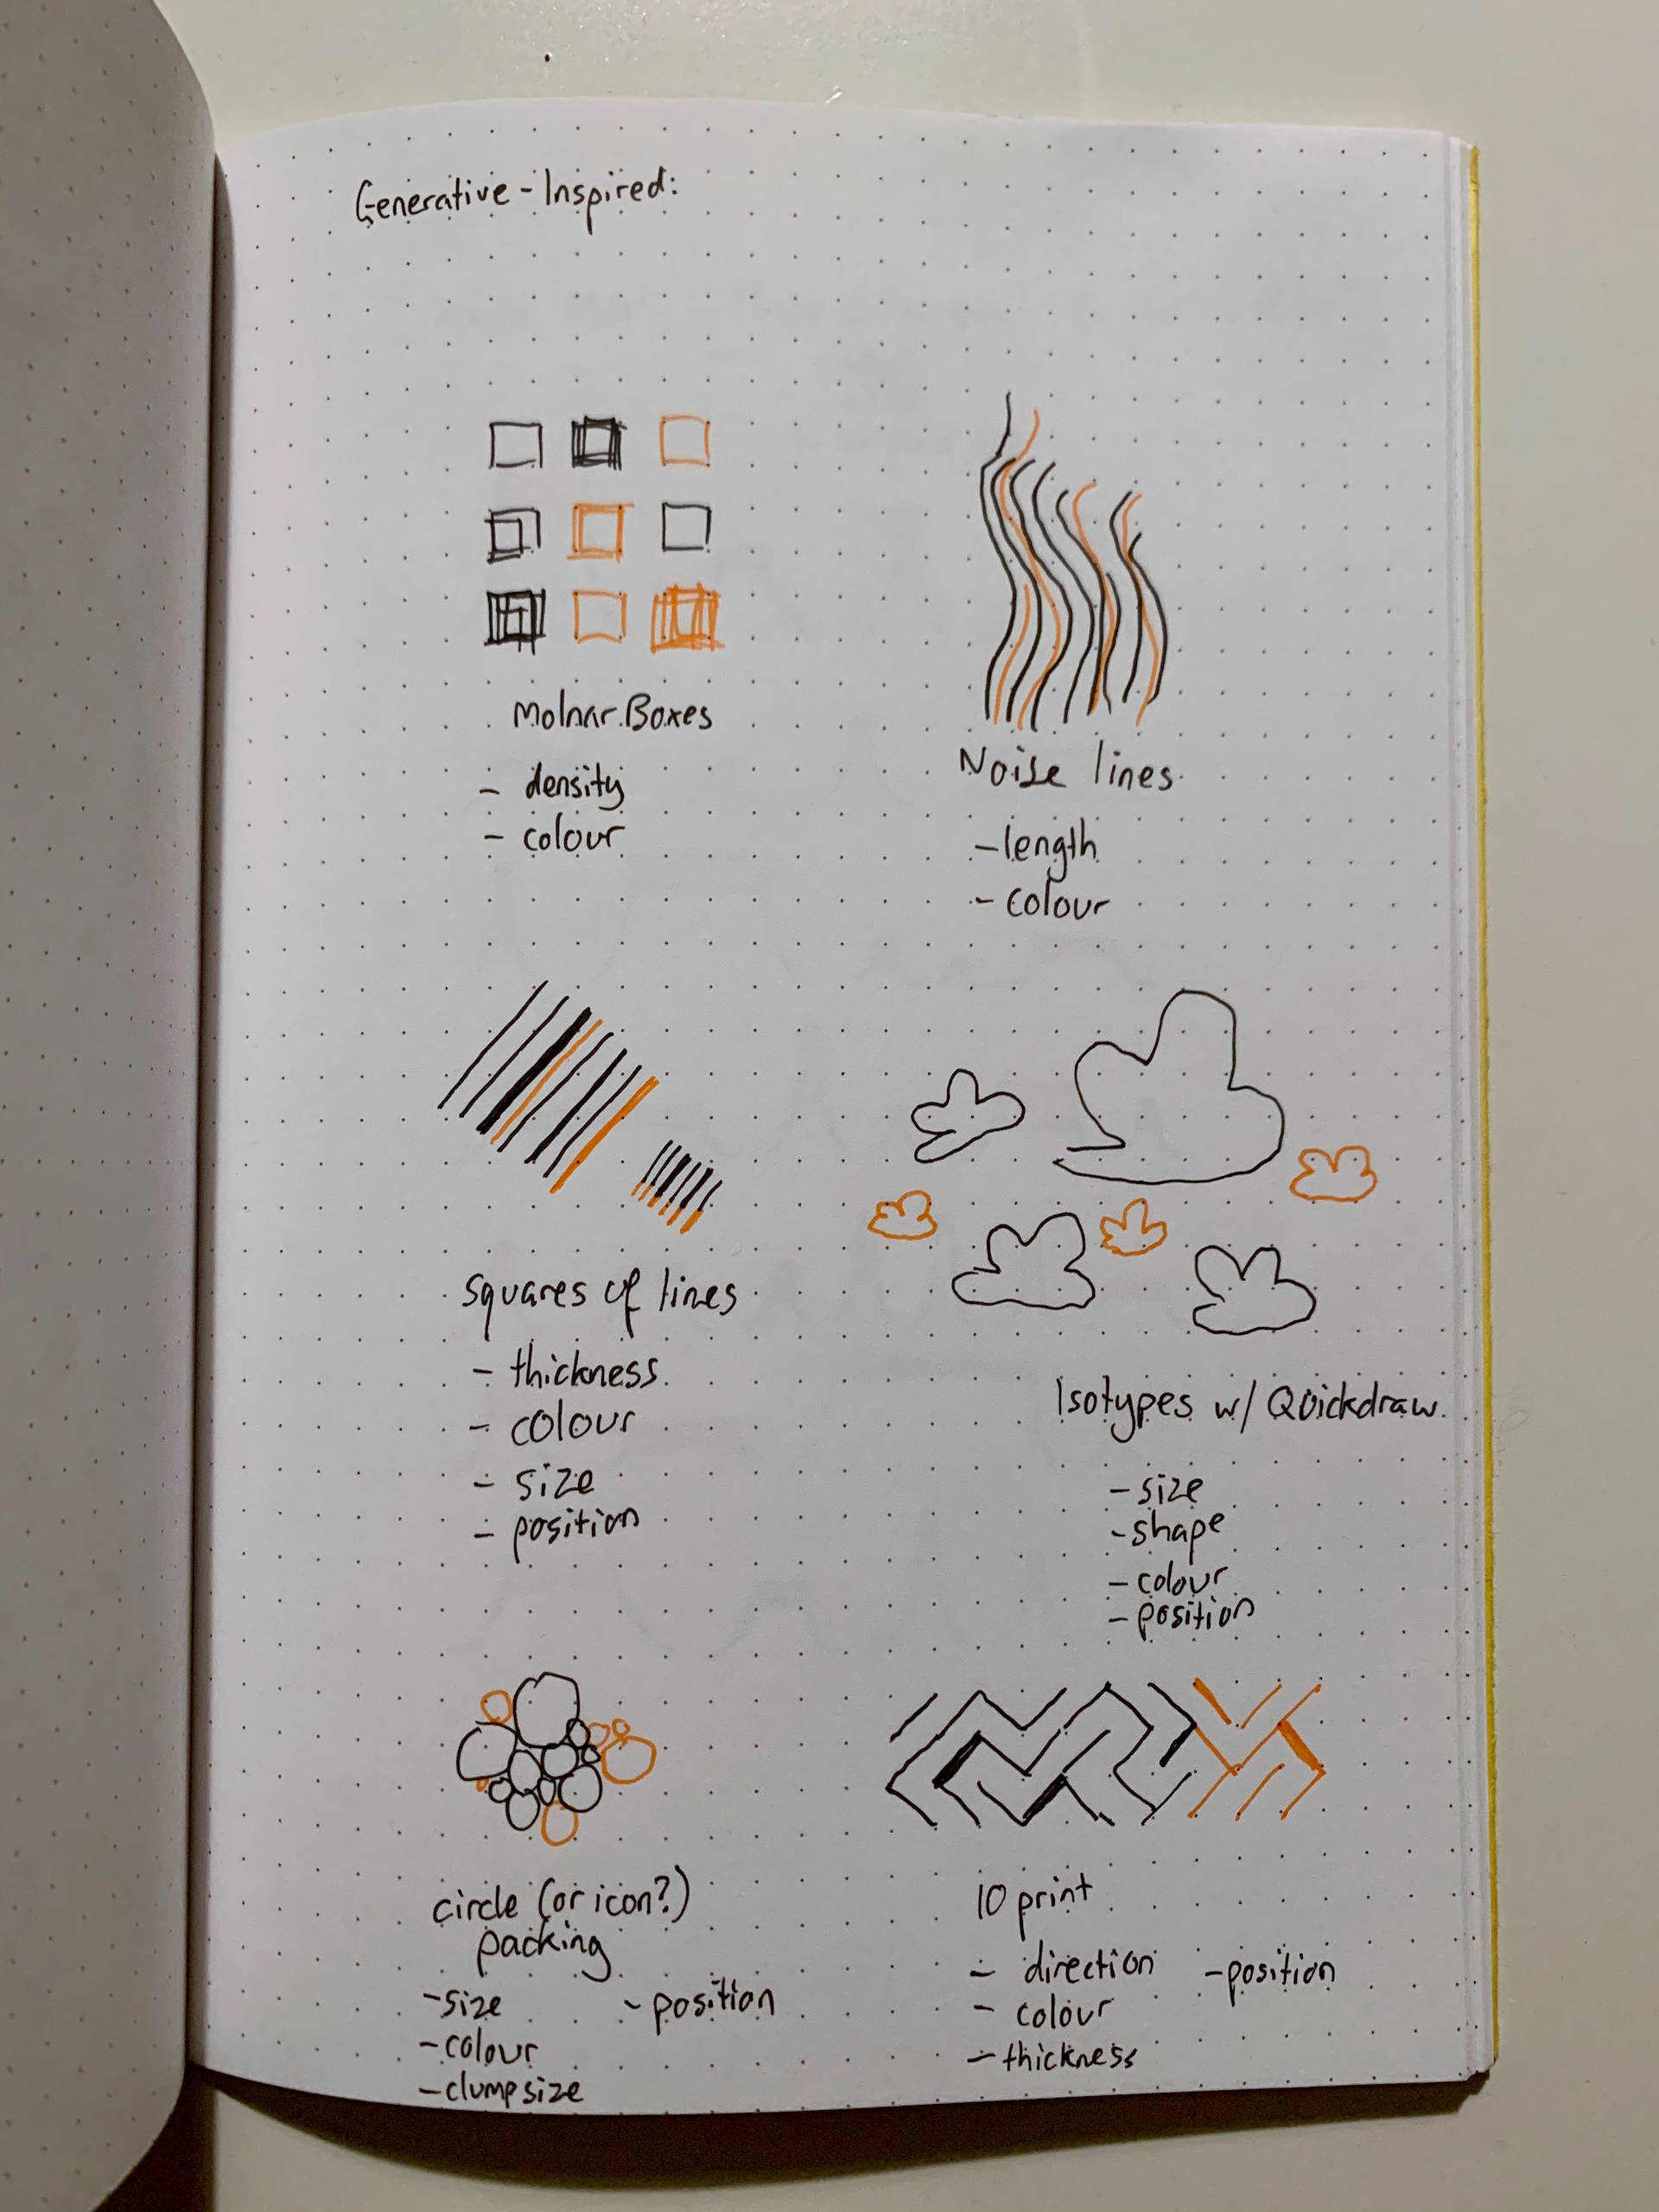 Generative-Inspired:
Molnar Boxes
- density
- colour
Noise lines
- length
- colour
squares of lines
- thickness
- colour
- size
- position
Isotypes w/ Quickdraw
- size
- shape
- colour
- position
circle (or icon?)
packing
- size
- colour
- clumpsize
- position
10 print
- direction
- colour
- thickness
- position